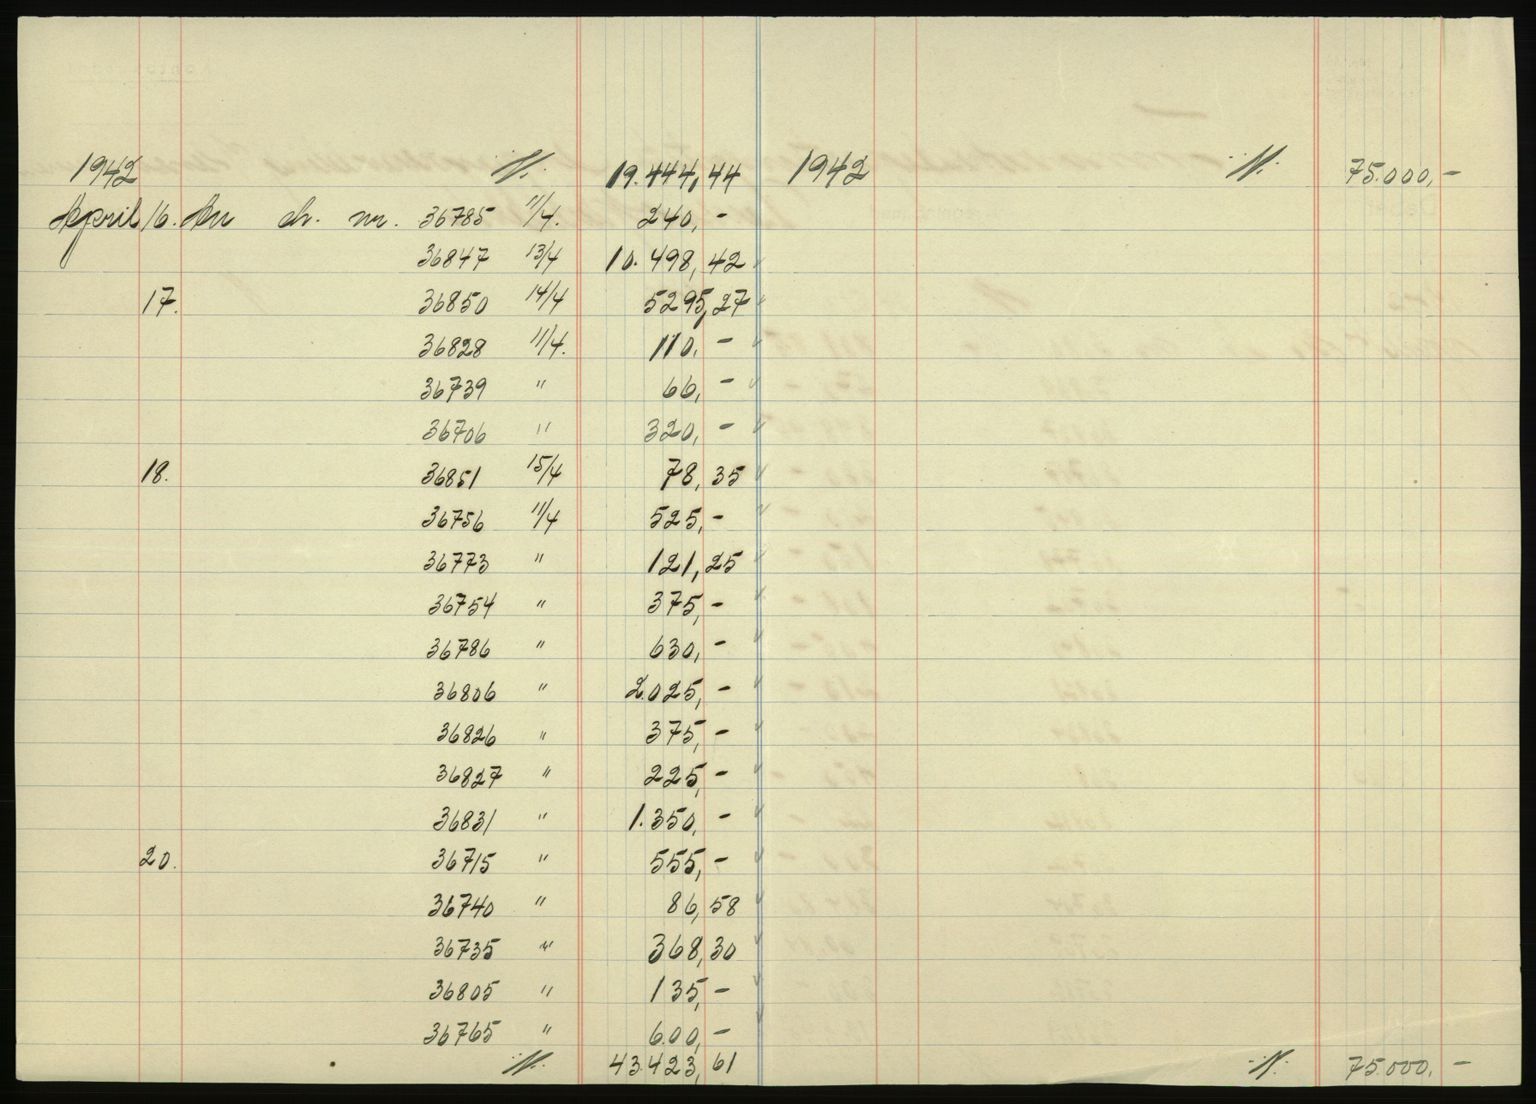 1942 ·/. 19.444,44 1942 ·/. 75.000,-
April 16. An ch. nr. 36785 11/4. 240,-
36847 13/4 10.498,42
17. 36850 14/4 5295,27
36828 11/4. 110,-
36739 " 66,-
36706 " 320,-
18. 36851 15/4 78,35
36756 11/4 525,-
36773 " 121,25
36754 " 375,-
36786 " 630,-
36806 " 2.025,-
36826 " 375,-
36827 " 225,-
36831 " 1.350,-
20. 36715 " 555,-
36740 " 86,58
36735 " 368,30
36805 " 135,-
36765 " 600,-
·/. 43.423,61 ·/. 75.000,-